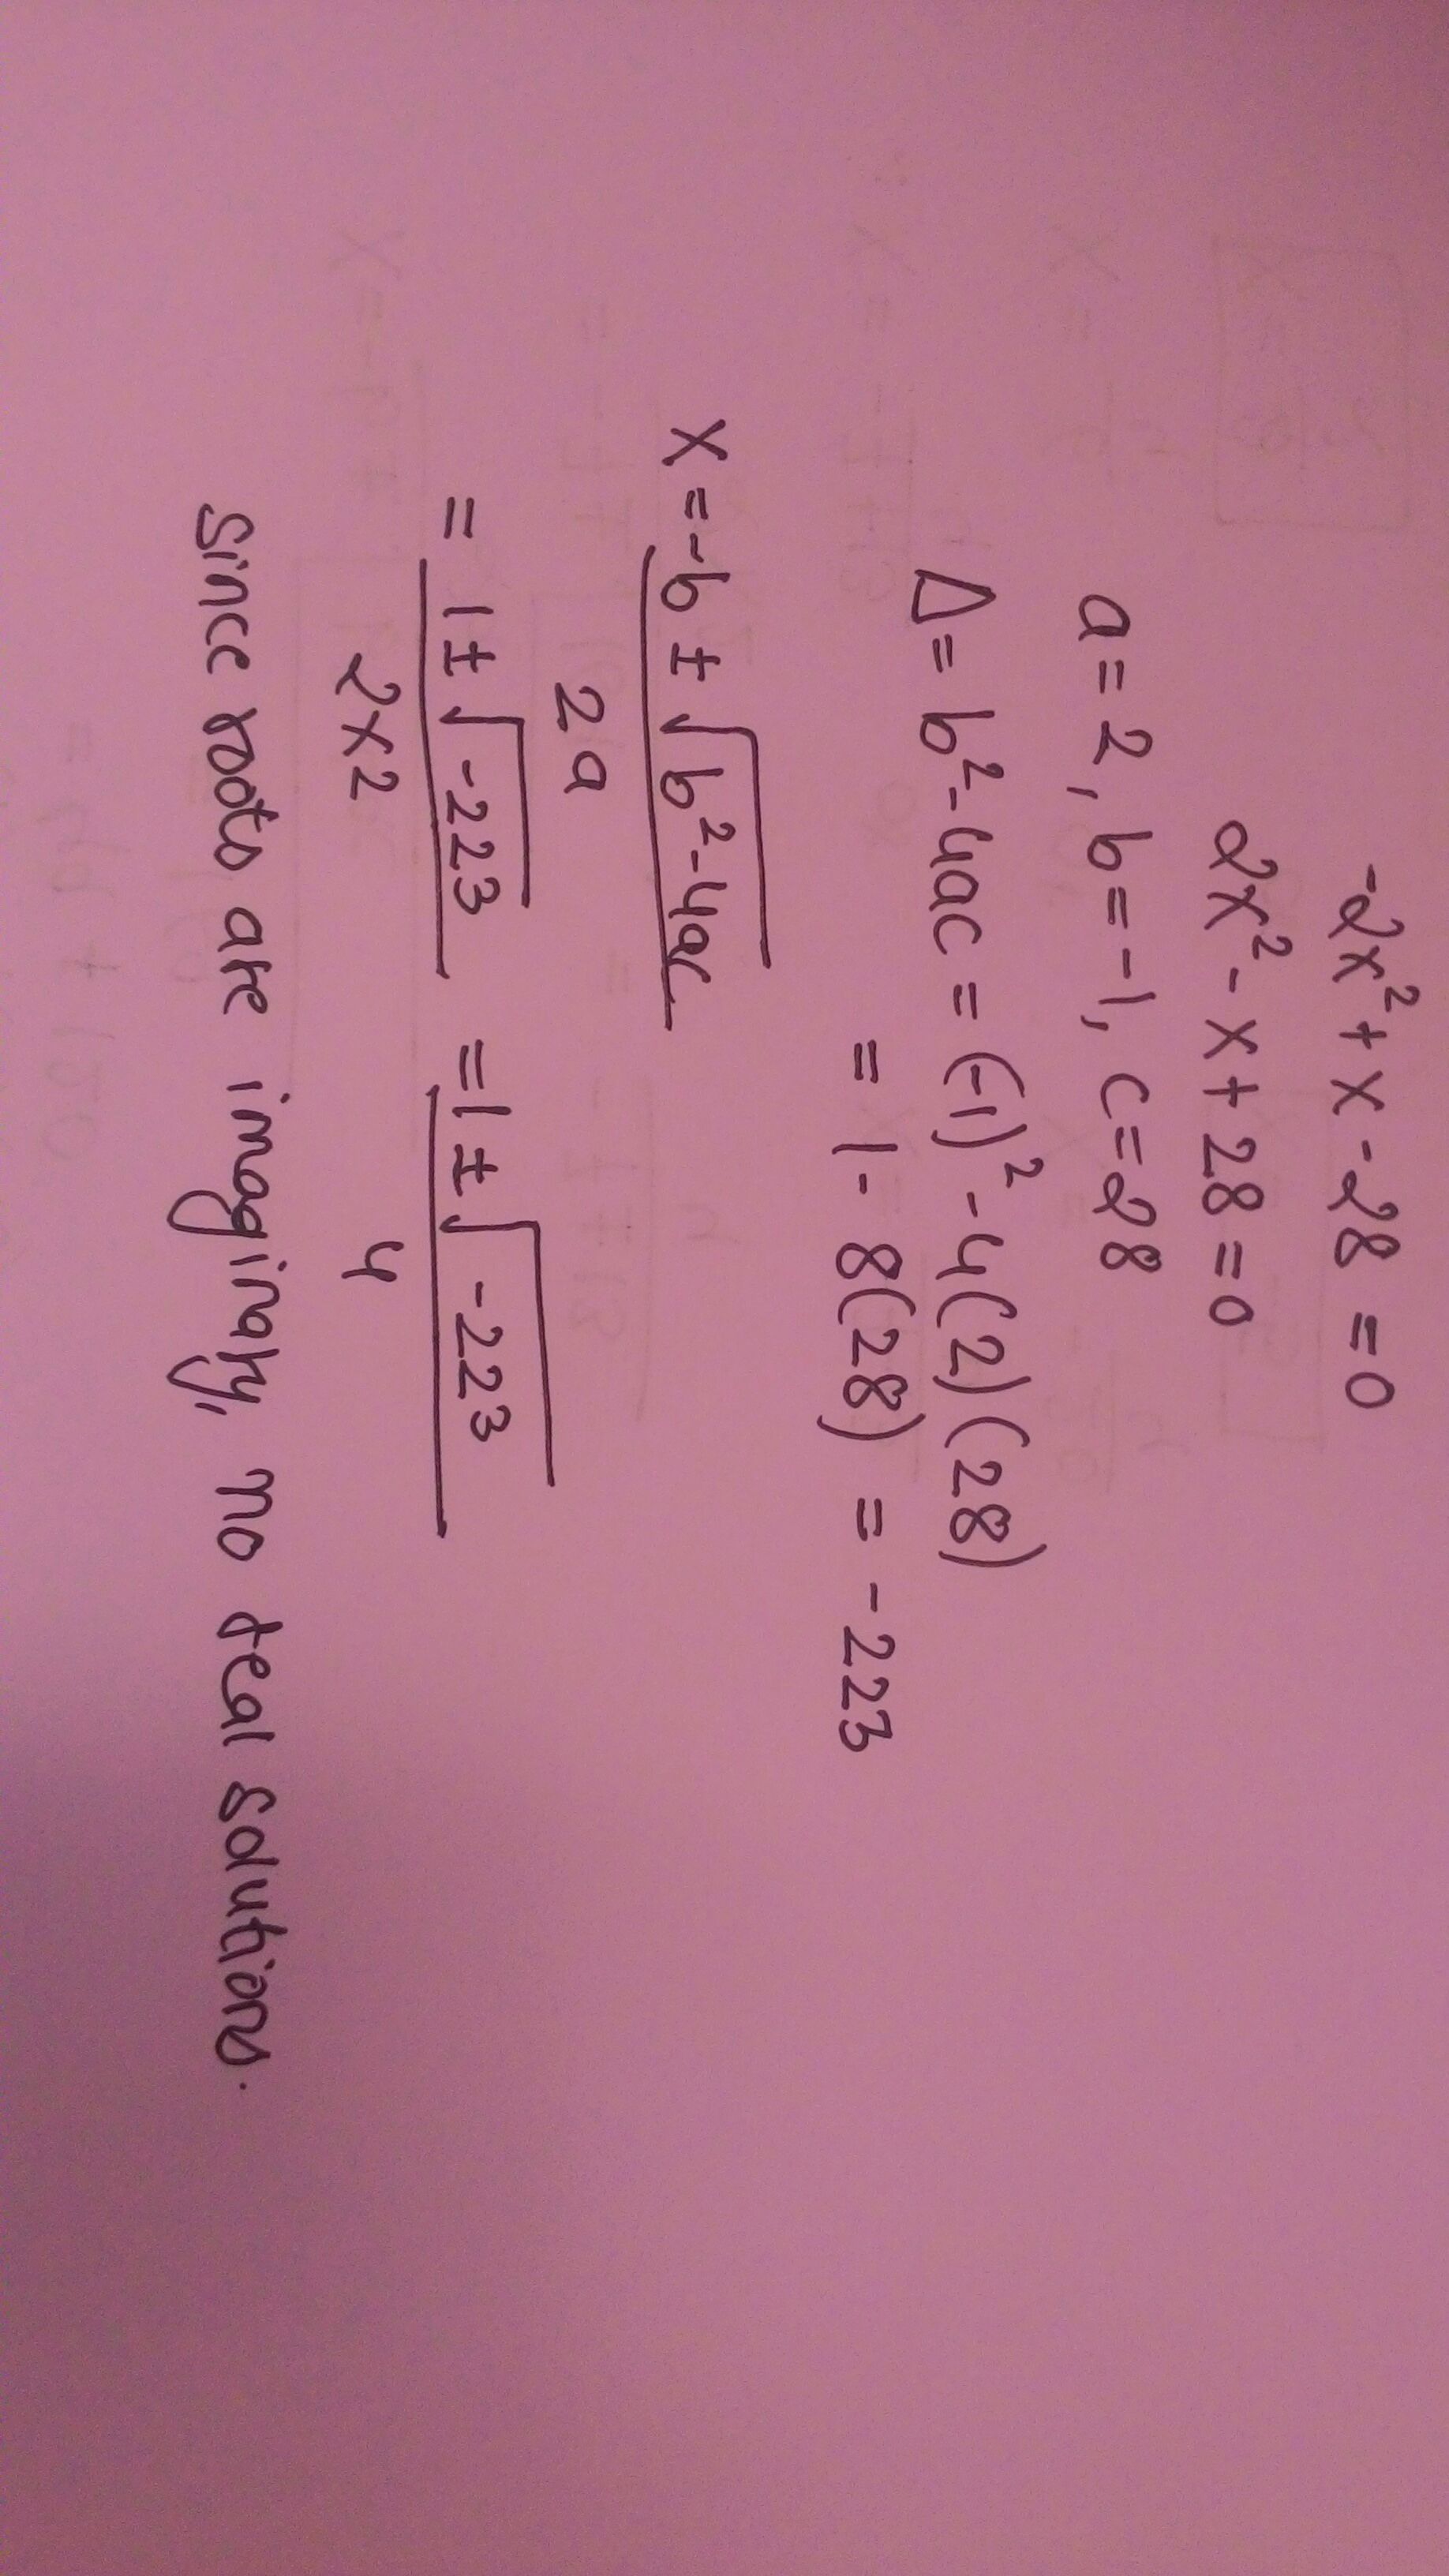 -2x² + x - 28 = 0
2x² - x + 28 = 0
a = 2, b = -1, c = 28
Δ = b² - 4ac = (-1)² - 4(2)(28)
= 1 - 8(28) = -223
x = -b ± √(b² - 4ac) / 2a
= 1 ± √(-223) / 2×2 = 1 ± √(-223) / 4
Since roots are imaginary, no real solutions.